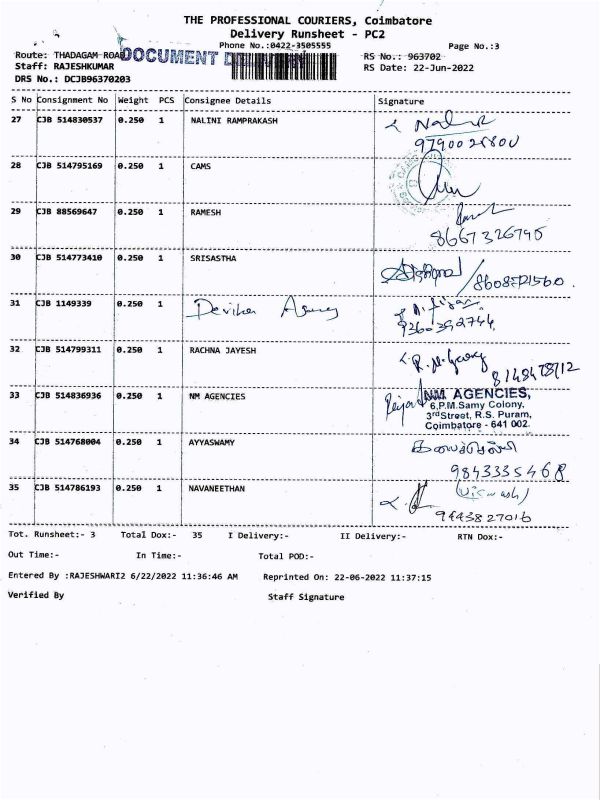 THE PROFESSIONAL COURIERS, Coimbatore
Delivery Runsheet - PC2
Phone No.:0422-3505555
Page No.:3
Route: THADAGAM ROAD
DOCUMENT
RS No.: 963702
Staff: RAJESHKUMAR
RS Date: 22-Jun-2022
DRS No.: DCJB96370203
S No Consignment No Weight PCS Consignee Details Signature
27 CJB 514830537 0.250 1 NALINI RAMPRAKASH
28 CJB 514795169 0.250 1 CAMS
29 CJB 88569647 0.250 1 RAMESH
8667326795
30 CJB 514773410 0.250 1 SRISASTHA
31 CJB 1149339 0.250 1 Devika
9360392744
32 CJB 514799311 0.250 1 RACHNA JAYESH
33 CJB 514836936 0.250 1 NM AGENCIES NM AGENCIES,
6,P.M.Samy Colony,
3rd Street, R.S. Puram,
Coimbatore - 641 002.
34 CJB 514768004 0.250 1 AYYASWAMY
9843335468
35 CJB 514786193 0.250 1 NAVANEETHAN
9443827016
Tot. Runsheet:- 3 Total Dox:- 35 I Delivery:- II Delivery:- RTN Dox:-
Out Time:- In Time:- Total POD:-
Entered By :RAJESHWARI2 6/22/2022 11:36:46 AM Reprinted On: 22-06-2022 11:37:15
Verified By Staff Signature